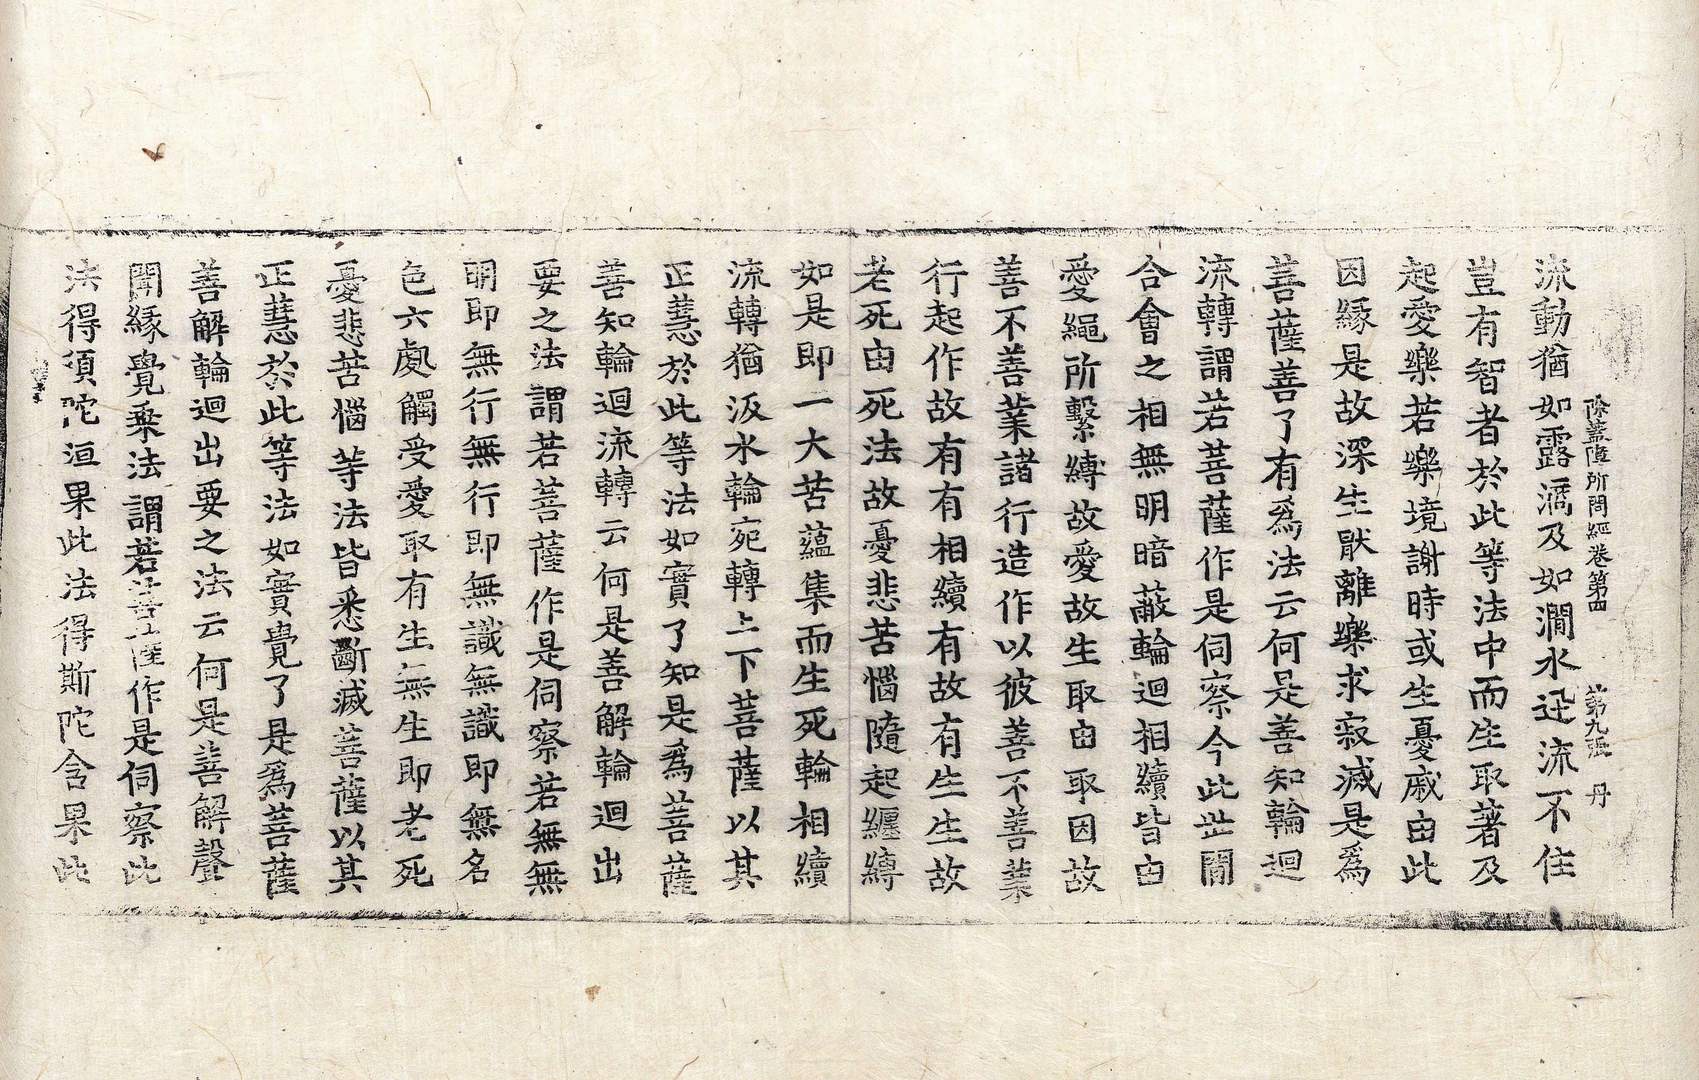 除蓋障所問經卷第四　第九張　丹
流動猶如露滴及如澗水迅流不住
豈有智者於此等法中而生取著及
起愛樂若樂境謝時或生憂慼由此
因緣是故深生猒離樂求寂滅是爲
菩薩善了有爲法云何是善知輪迴
流轉謂若菩薩作是伺察今此世間
合會之相無明暗蔽輪迴相續皆由
愛繩所繫縛故愛故生取由取因故
善不善業諸行造作以彼善不善業
行起作故有有相續有故有生生故
老死由死法故憂悲苦惱隨起纏縛
如是即一大苦蘊集而生死輪相續
流轉猶汲水輪宛轉上下菩薩以其
正慧於此等法如實了知是爲菩薩
善知輪迴流轉云何是善解輪迴出
要之法謂若菩薩作是伺察若無無
明即無行無行即無識無識即無名
色六處觸受愛取有生無生即老死
憂悲苦惱等法皆悉斷滅菩薩以其
正慧於此等法如實覺了是爲菩薩
善解輪迴出要之法云何是善解聲
聞緣覺乘法謂若菩薩作是伺察此
法得須陀洹果此法得斯陀含果此